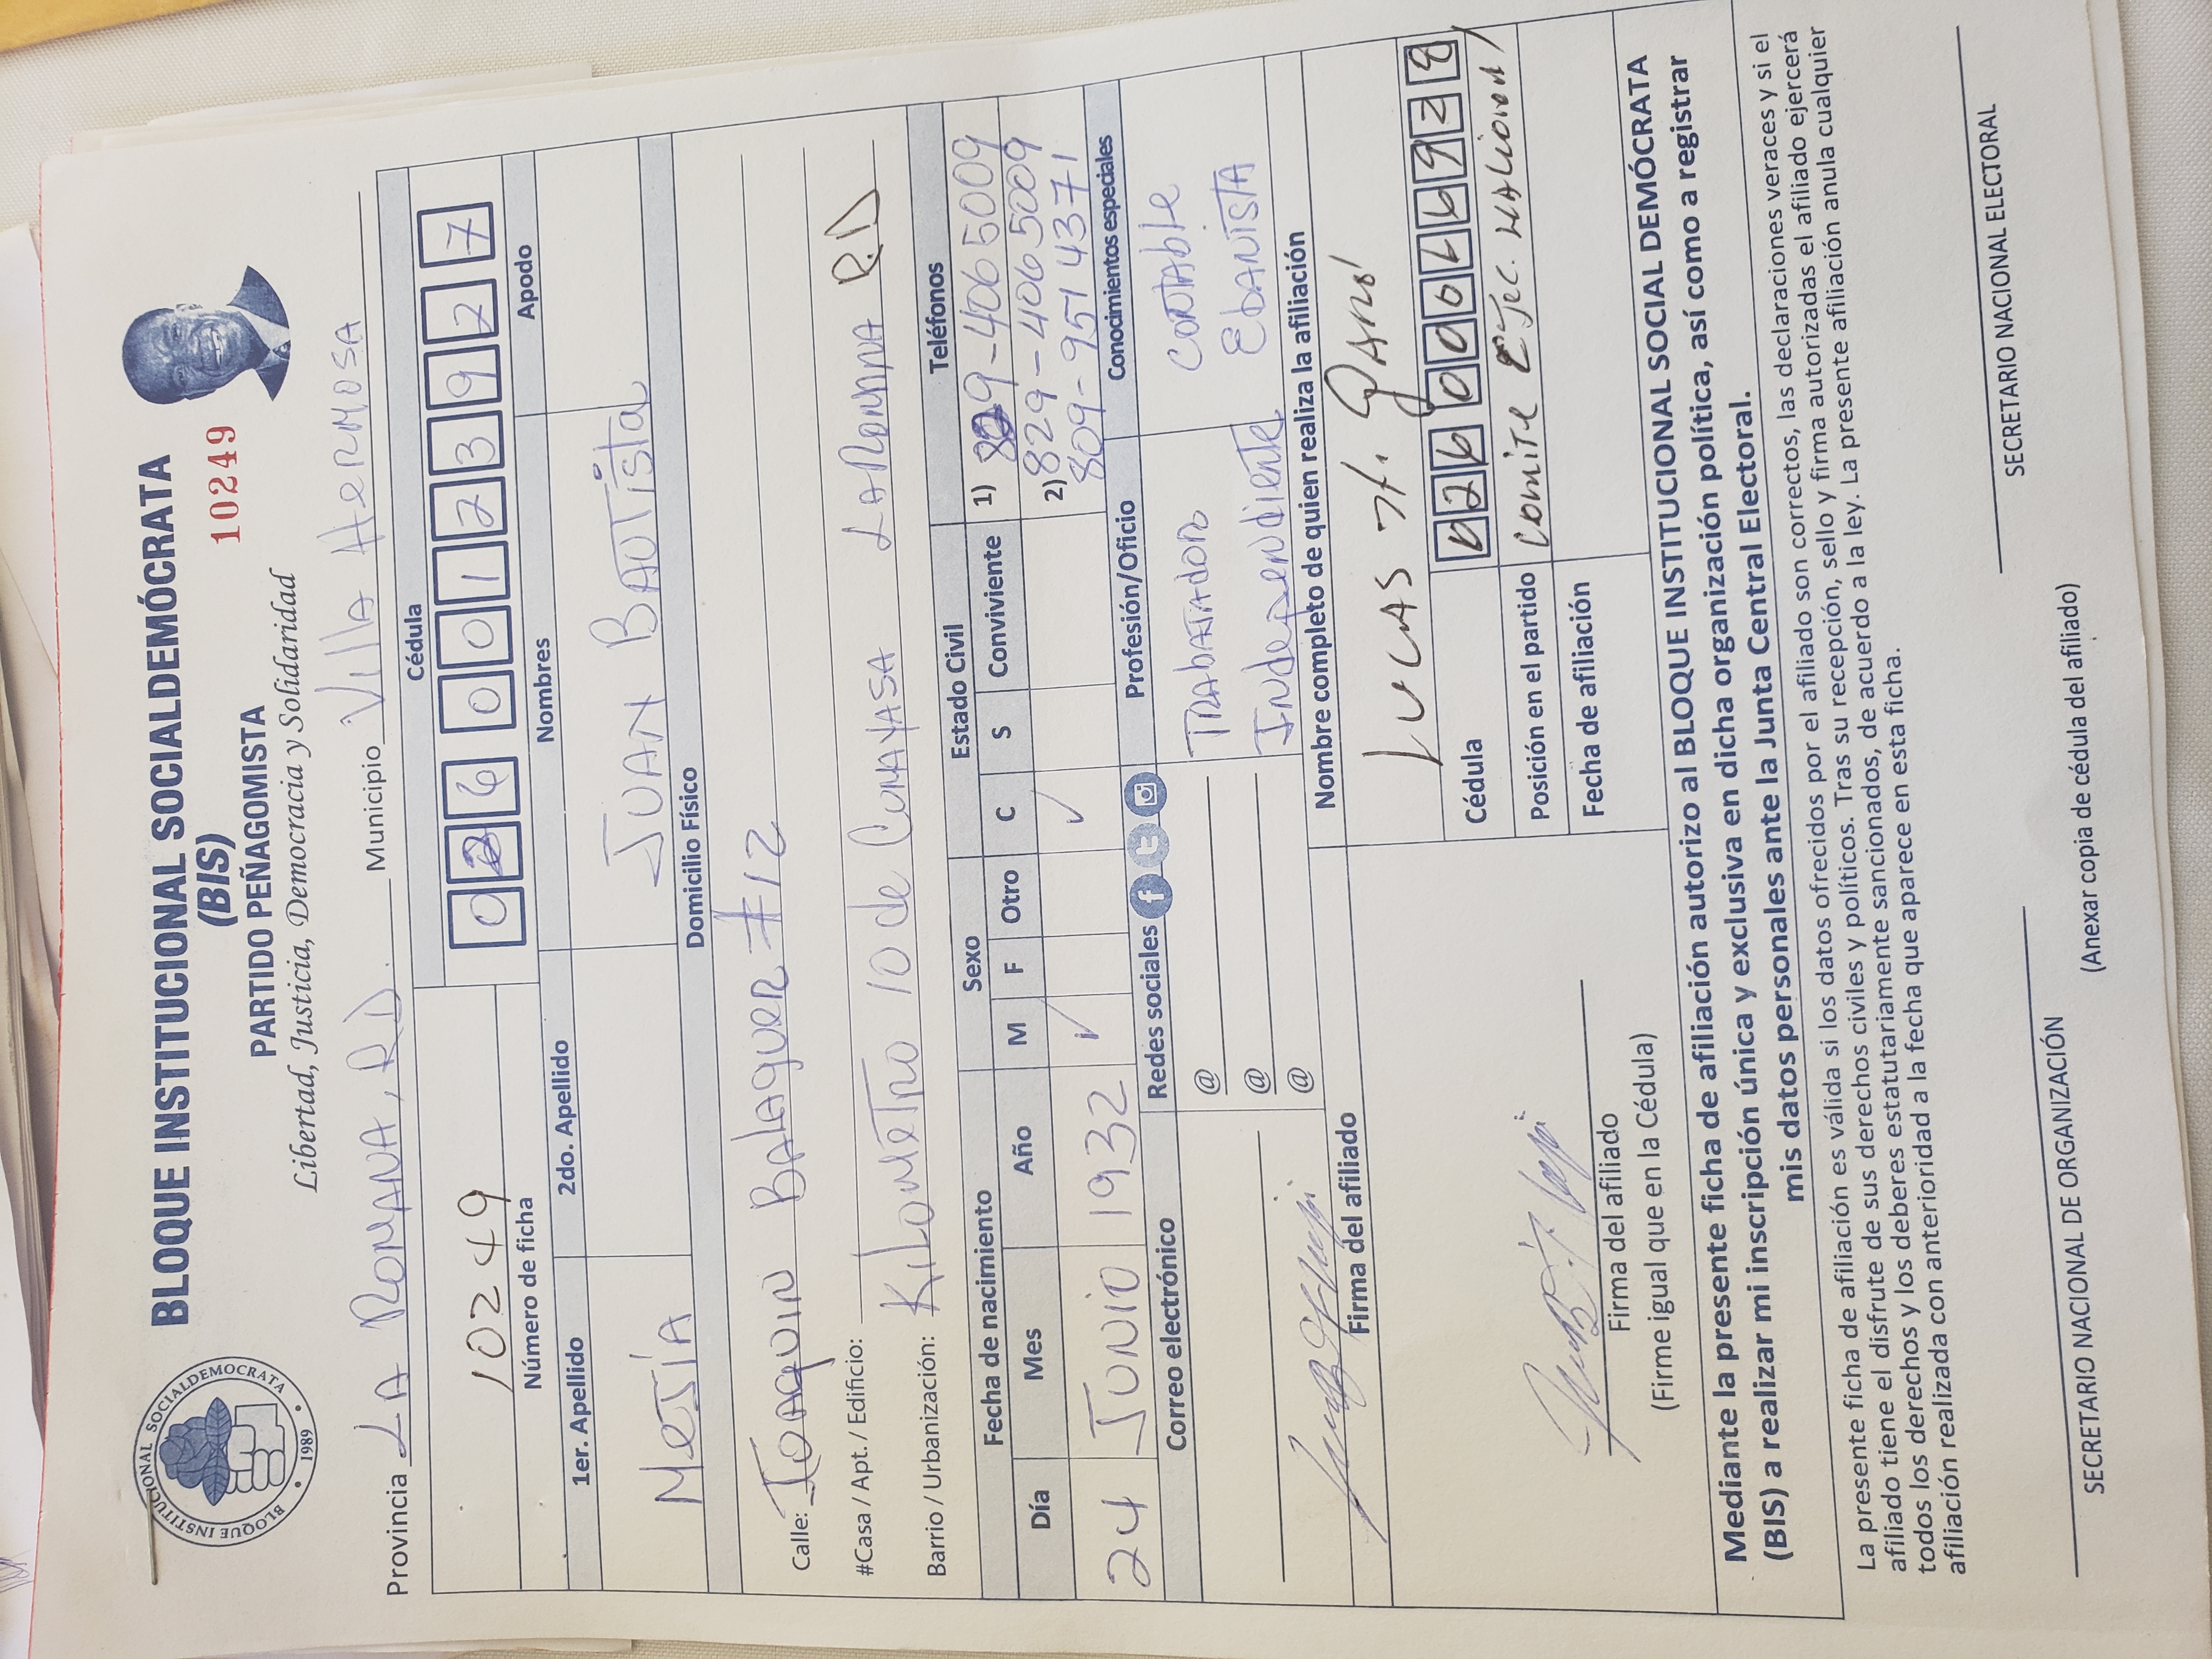 BLOQUE INSTITUCIONAL SOCIALDEMOCRATA
• 1989 •
BLOQUE INSTITUCIONAL SOCIALDEMÓCRATA
(BIS)
PARTIDO PEÑAGOMISTA
10249
Libertad, Justicia, Democracia y Solidaridad
Provincia LA ROMANA, RD. Municipio Villa HERMOSA
Cédula
10249
0 2 6 0 0 1 2 3 9 2 7
Número de ficha
1er. Apellido 2do. Apellido Nombres Apodo
MeJÍA JUAN BAUTista
Domicilio Físico
Calle: JOAQUIN BALAGUER #12
#Casa / Apt. / Edificio:
Barrio / Urbanización: KiLoMeTRo 10 de CUMAYASA LA ROMANA R.D
Fecha de nacimiento Sexo Estado Civil Teléfonos
Día Mes Año M F Otro C S Conviviente 1) 829-406 5009
24 JUNIO 1932 ✓ ✓ 2) 829-406 5009
809-951 4371
Correo electrónico Redes sociales Profesión/Oficio Conocimientos especiales
@ TRABAJADOR CONTABLE
@ INdependiente EbANISTA
@
Firma del afiliado Nombre completo de quien realiza la afiliación
LUCAS
Cédula 026 00
Posición en el partido Comite EJec. NACIONAL
Fecha de afiliación
Firma del afiliado
(Firme igual que en la Cédula)
Mediante la presente ficha de afiliación autorizo al BLOQUE INSTITUCIONAL SOCIAL DEMÓCRATA
(BIS) a realizar mi inscripción única y exclusiva en dicha organización política, así como a registrar
mis datos personales ante la Junta Central Electoral.
La presente ficha de afiliación es válida si los datos ofrecidos por el afiliado son correctos, las declaraciones veraces y si el
afiliado tiene el disfrute de sus derechos civiles y políticos. Tras su recepción, sello y firma autorizadas el afiliado ejercerá
todos los derechos y los deberes estatutariamente sancionados, de acuerdo a la ley. La presente afiliación anula cualquier
afiliación realizada con anterioridad a la fecha que aparece en esta ficha.
SECRETARIO NACIONAL DE ORGANIZACIÓN SECRETARIO NACIONAL ELECTORAL
(Anexar copia de cédula del afiliado)